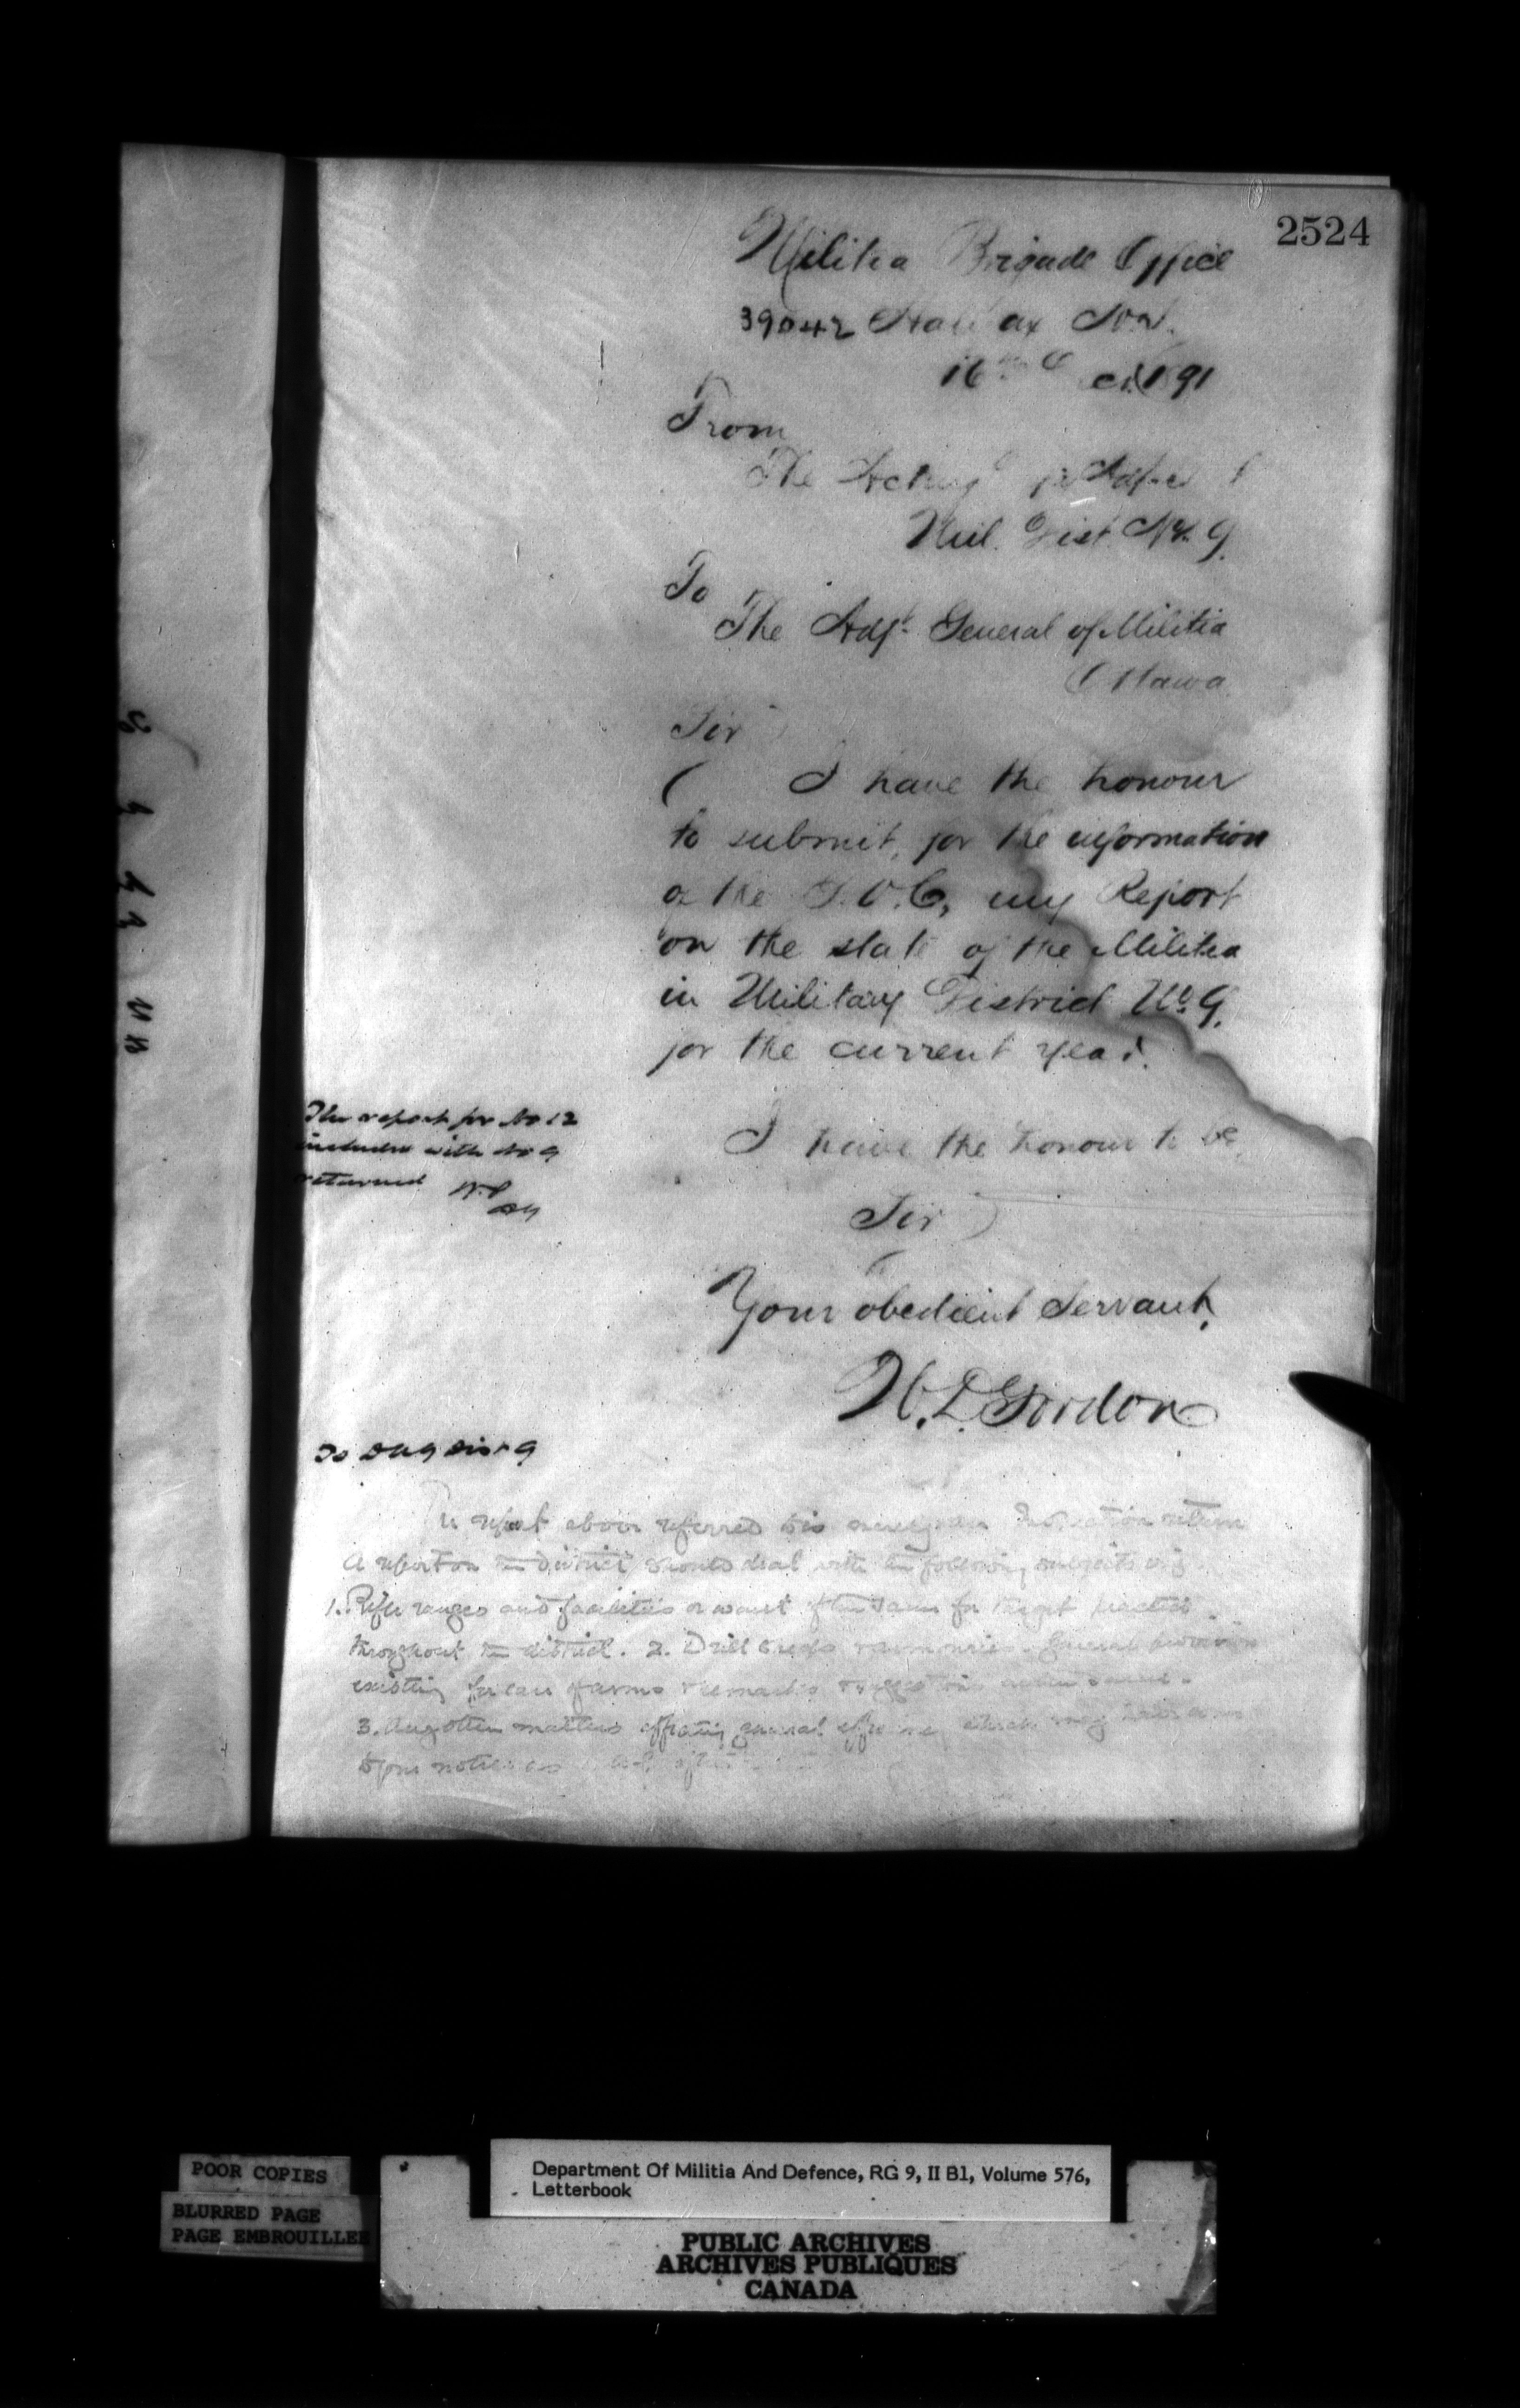 2524
Militia Brigade Office
39042 Halifax N.S.
16th 91
From
The Acting
Mil. Dist. No. 9.
To
The Adjt. General of Militia
Ottawa
Sir
I have the honour
to submit, for the information
of the G.O.C, my Report
on the state of the Militia
in Military District No. 9.
for the current year.
The report for No 12
included with No 9
returned
I have the honour to be,
Sir
Your obedient Servant,
W.D. Gordon
To DAG Dist 9
The report above referred to is Inspection return
A report on the District should deal with the following subjects viz
1. Rifle ranges and facilities or want of the same for target practice
throughout the district. 2. Drill sheds General provision
existing for care of arms remarks suggestions
3. Any other matters affecting general which may
to your notice as
POOR COPIES
BLURRED PAGE
PAGE EMBROUILLEE
Department Of Militia And Defence, RG 9, II B1, Volume 576,
Letterbook
PUBLIC ARCHIVES
ARCHIVES PUBLIQUES
CANADA